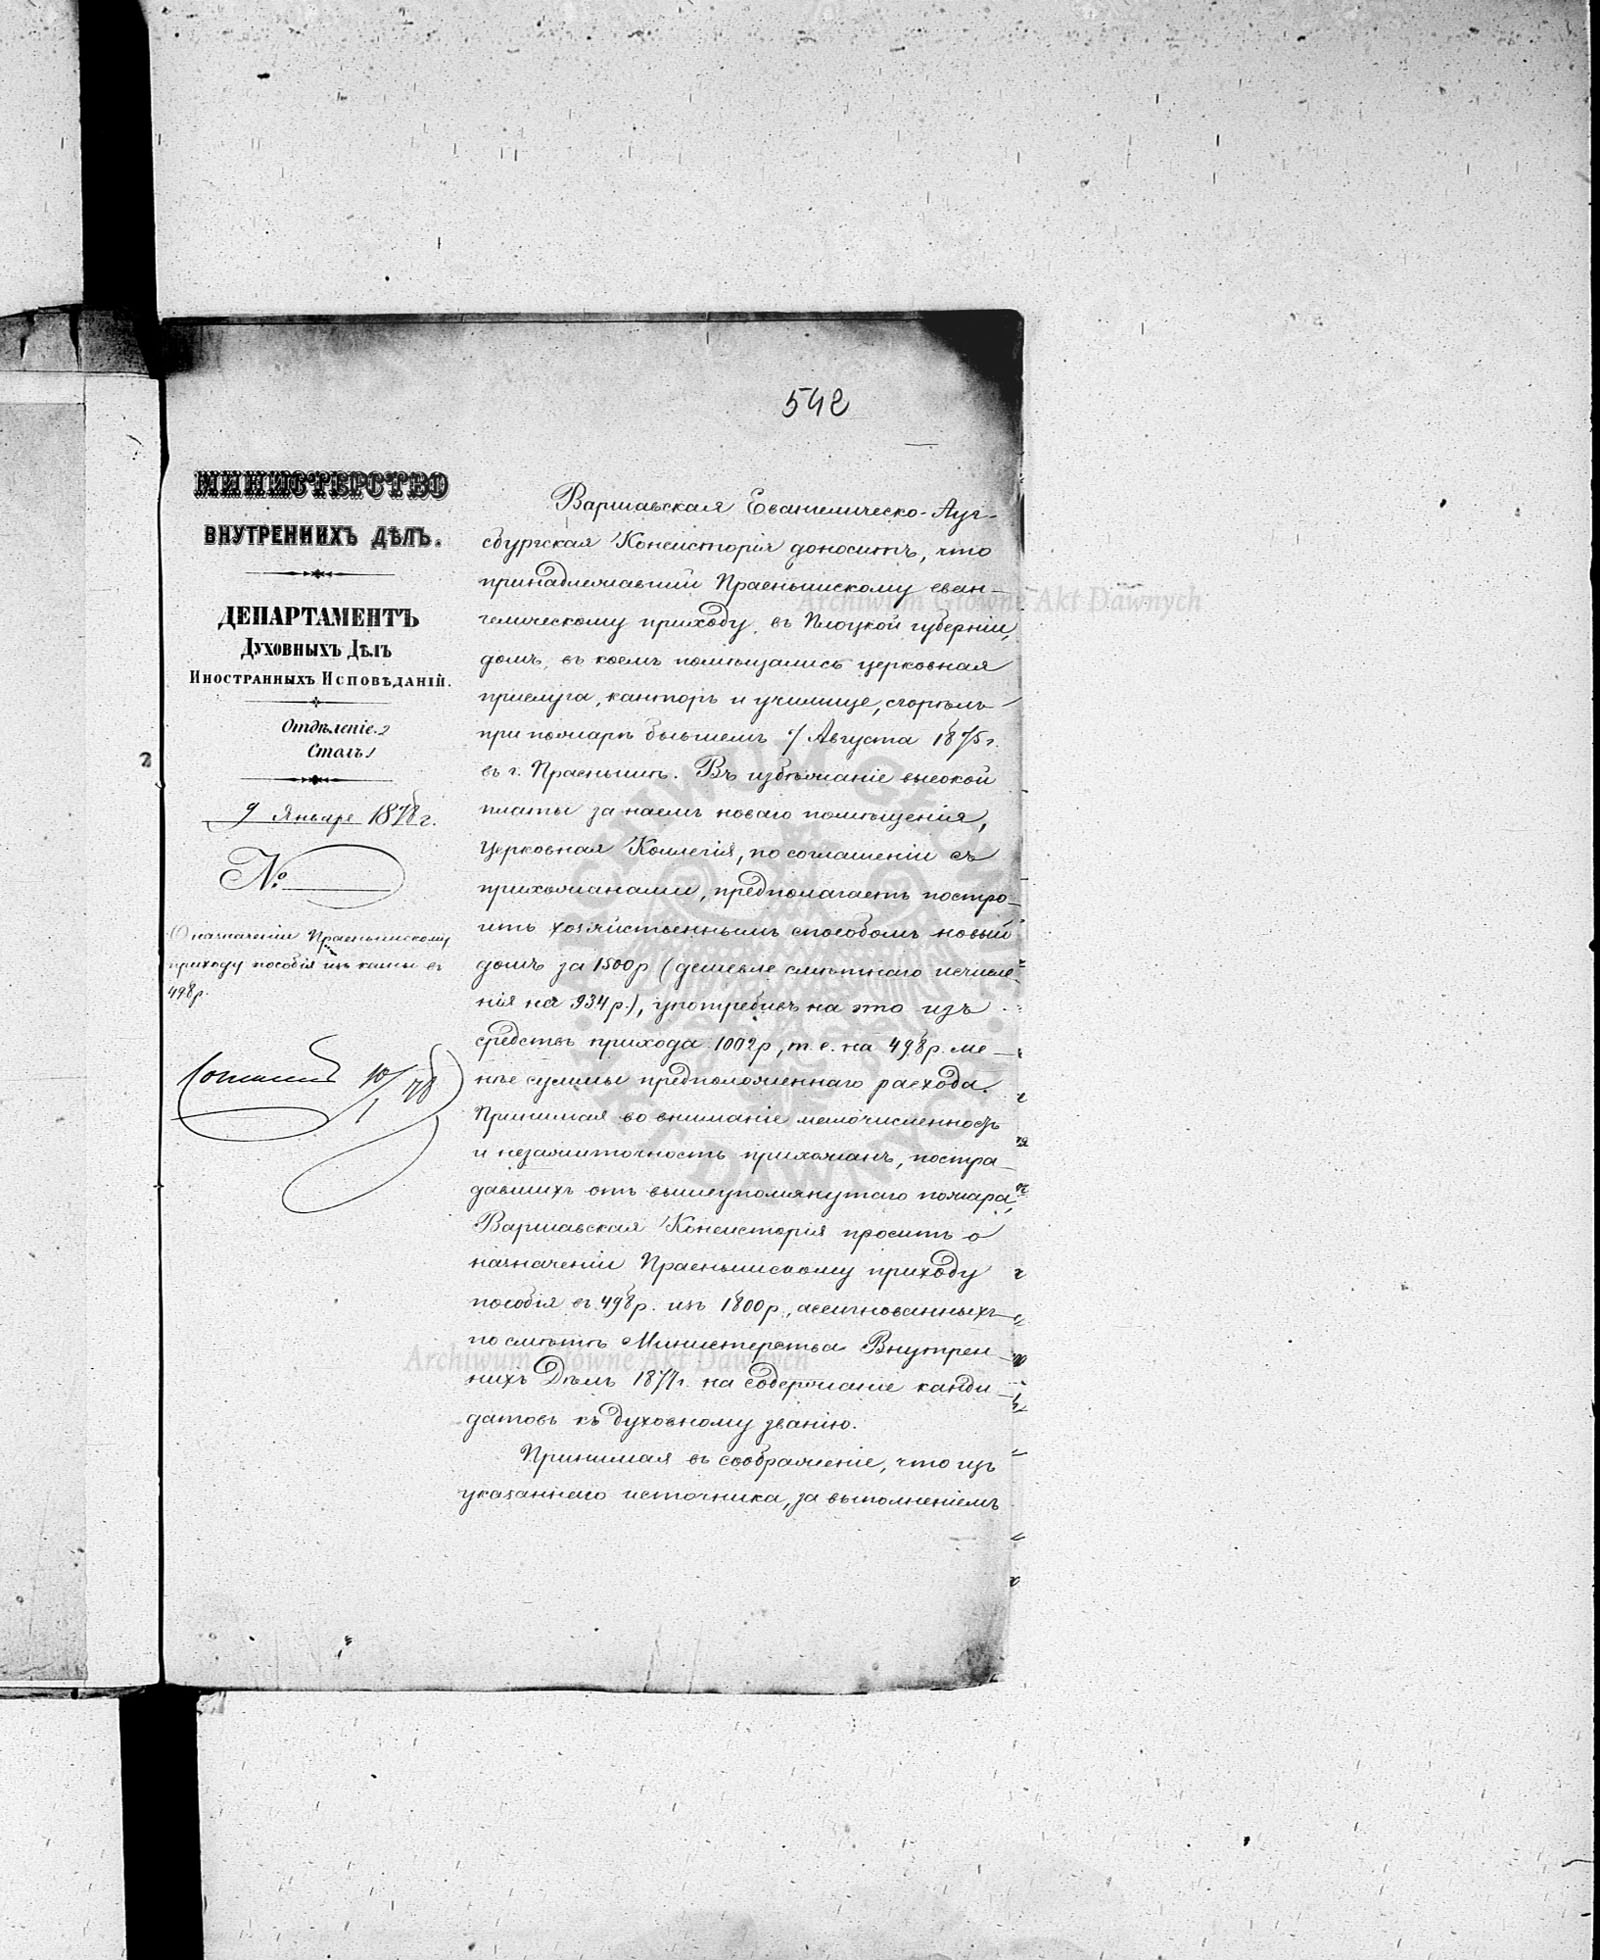 542
МИНИСТЕРСТВО
ВНУТРЕННИХЪ ДѢЛЪ.
ДЕПАРТАМЕНТЪ
ДУХОВНЫХЪ ДѢЛЪ
ИНОСТРАННЫХЪ ИСПОВѢДАНІЙ.
Отдѣленіе 2
Столъ 1
9 Января 1878 г.
№
О назначеніи Праснышскому
приходу пособія изъ казны въ
498 р.
10/1 78
Варшавская Евангелическо-Ауг-
сбургская Консисторія доноситъ, что
принадлежавшій Праснышскому еван-
гелическому приходу, въ Плоцкой губерніи,
домъ, въ коемъ помѣщались церковная
прислуга, канторъ и училище, сгорѣлъ
при пожарѣ бывшемъ Августа 1875 г.
въ г. Праснышѣ. Въ избѣжаніе высокой
платы за наемъ новаго помѣщенія,
Церковная Коллегія, по соглашенію съ
прихожанами, предполагаетъ постро-
ить хозяйственнымъ способомъ новый
домъ за 1500 р (дешевле смѣтнаго исчисле-
нія на 934 р.), употребивъ на это изъ
средствъ прихода 1002 р, т. е. на 498 р. ме-
нѣе суммы предположеннаго расхода.
Принимая во вниманіе малочисленность
и незажиточность прихожанъ, постра-
давшихъ отъ вышеупомянутаго пожара,
Варшавская Консисторія проситъ о
назначеніи Праснышскому приходу
пособія въ 498 р. изъ 1800 р., ассигнованныхъ
по смѣтѣ Министерства Внутрен-
нихъ Дѣлъ 1877 г. на содержаніе канди-
датовъ къ духовному званію.
Принимая въ соображеніе, что изъ
указаннаго источника, за выполненіемъ
Archiwum Główne Akt Dawnych
Archiwum Główne Akt Dawnych